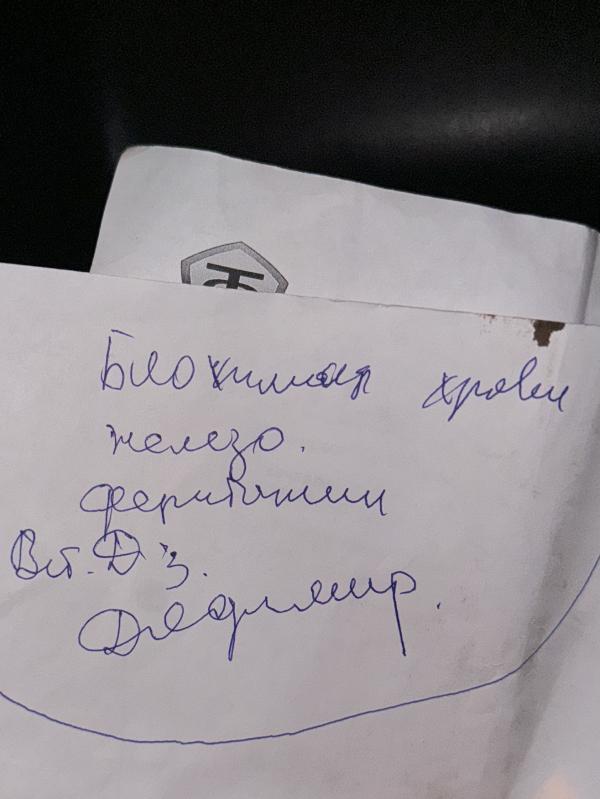 Биохимия крови
железо.
ферритин
Вит. Д 3.